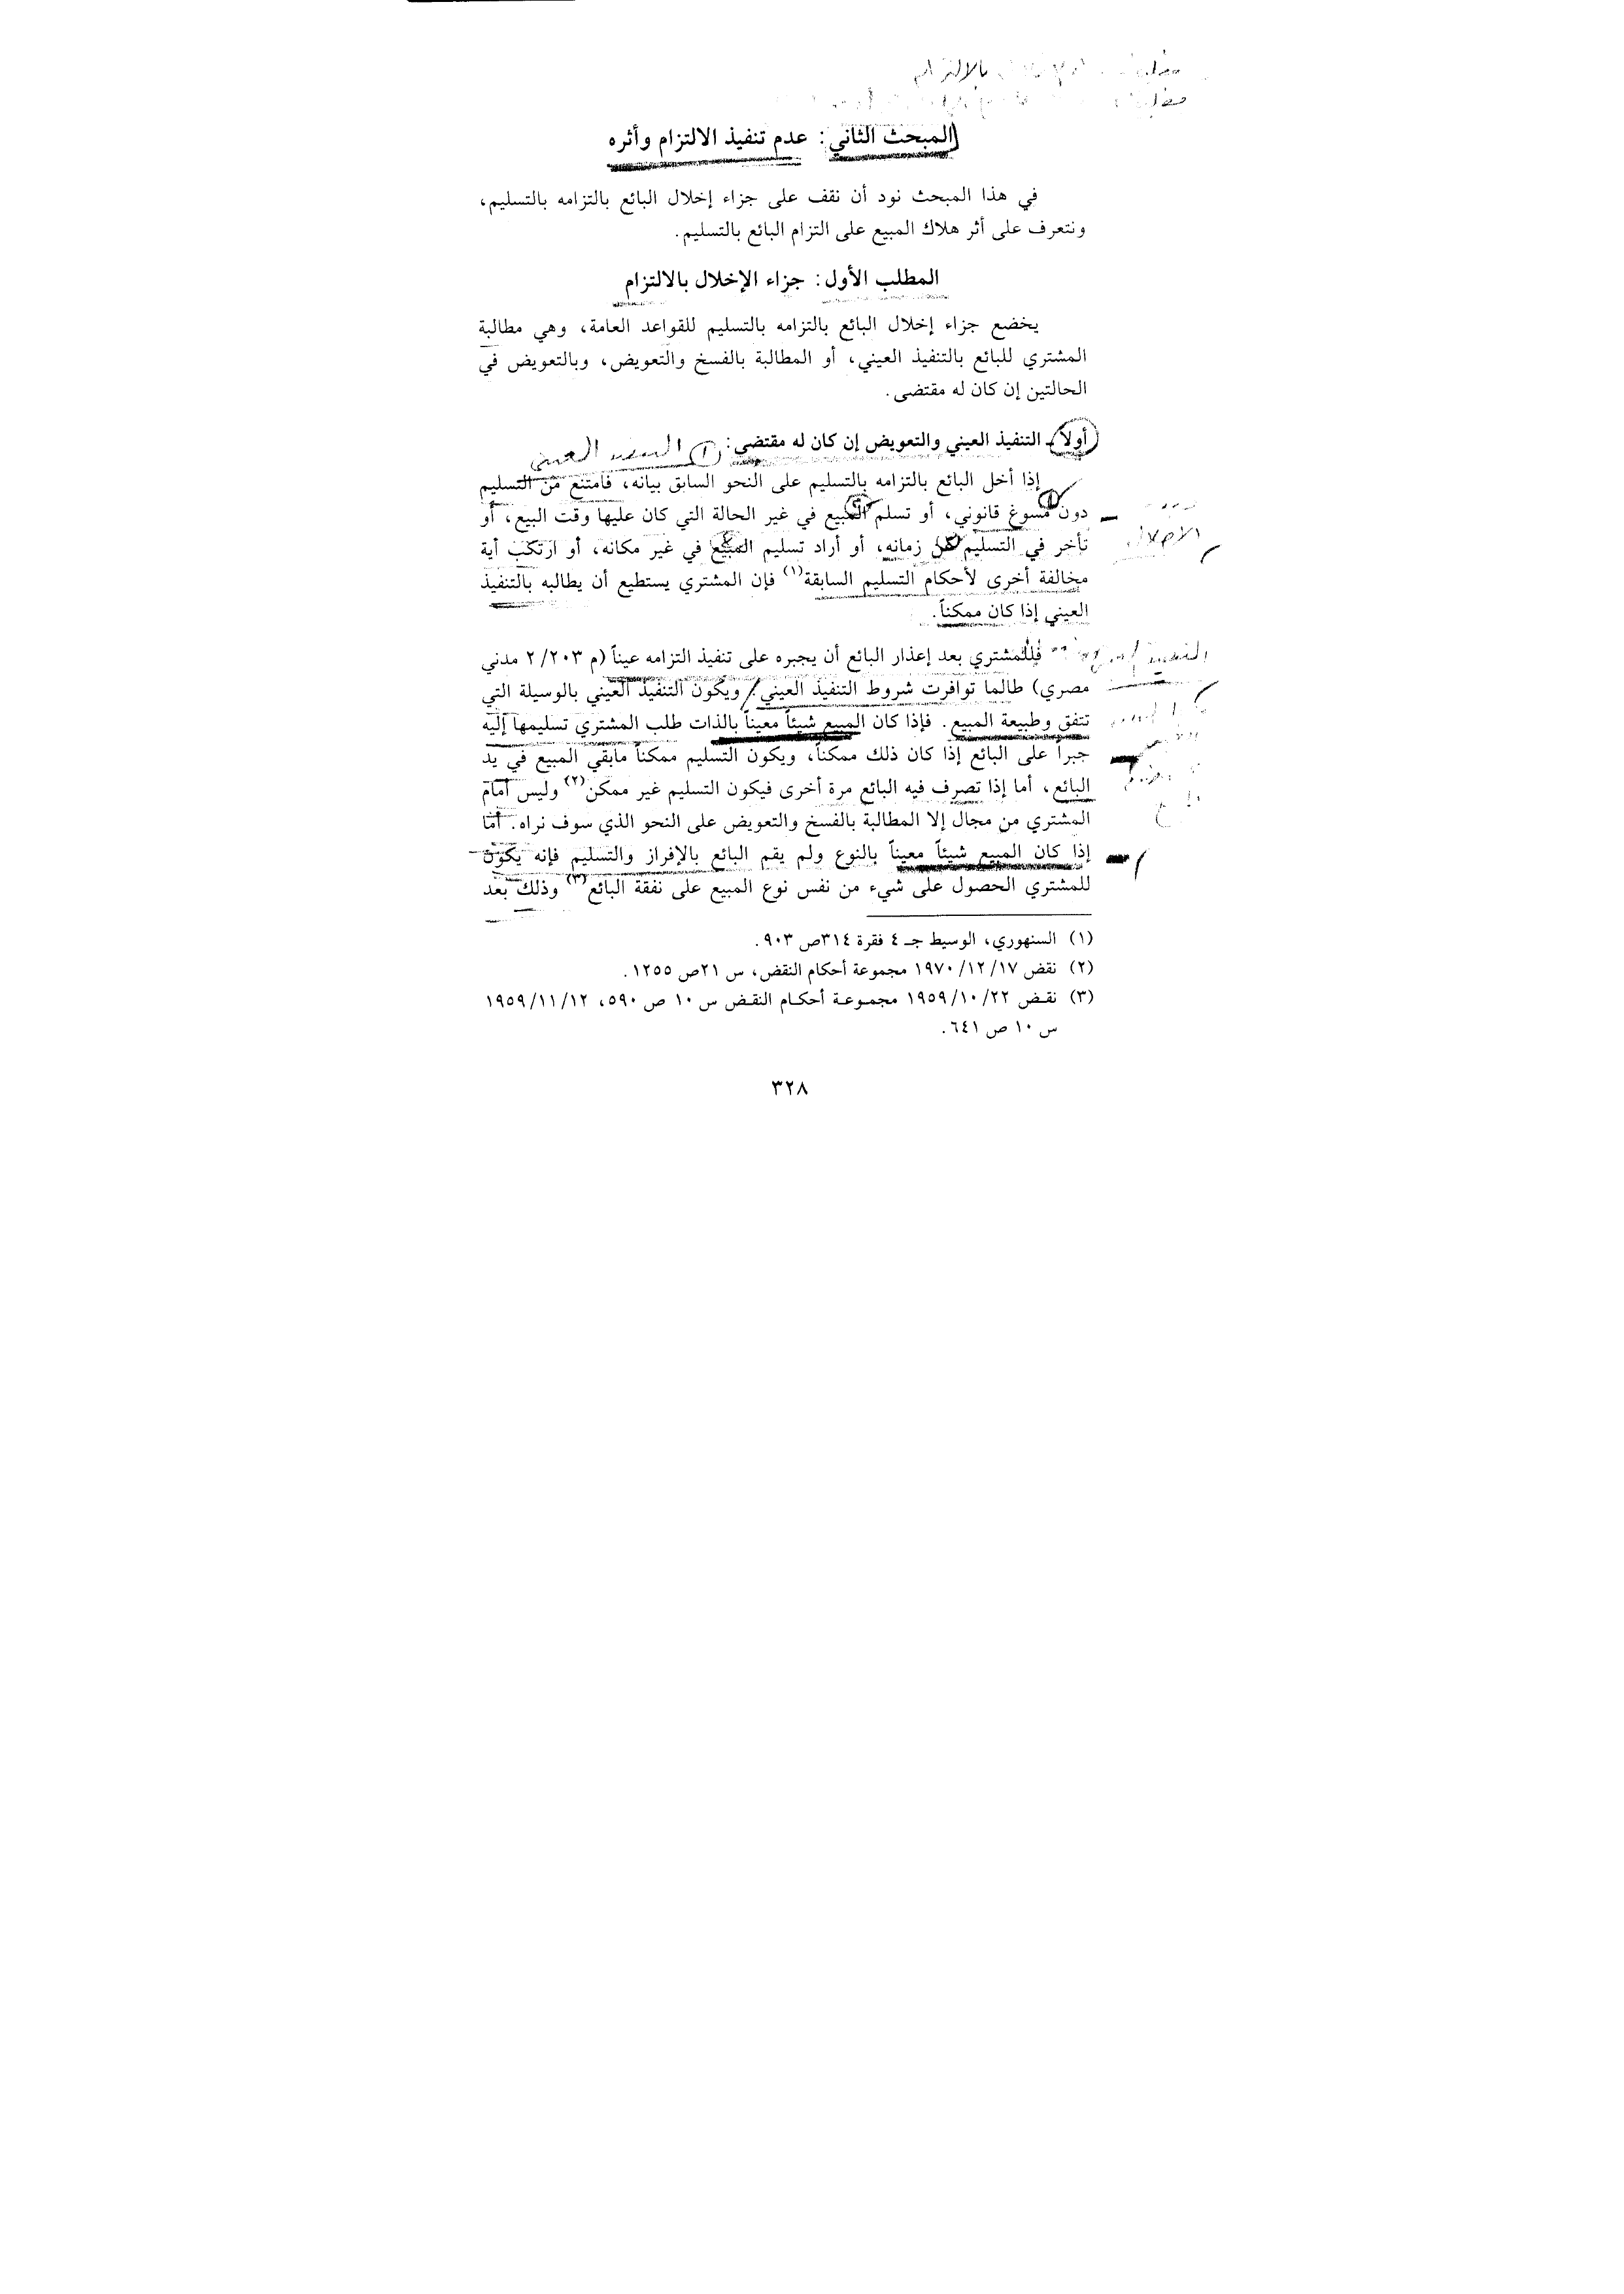 بالالتزام
المبحث الثاني: عدم تنفيذ الالتزام وأثره
في هذا المبحث نود أن نقف على جزاء إخلال البائع بالتزامه بالتسليم،
ونتعرف على أثر هلاك المبيع على التزام البائع بالتسليم.
المطلب الأول: جزاء الإخلال بالالتزام
يخضع جزاء إخلال البائع بالتزامه بالتسليم للقواعد العامة، وهي مطالبة
المشتري للبائع بالتنفيذ العيني، أو المطالبة بالفسخ والتعويض، وبالتعويض في
الحالتين إن كان له مقتضى.
أولاً - التنفيذ العيني والتعويض إن كان له مقتضي: ١ العيني
إذا أخل البائع بالتزامه بالتسليم على النحو السابق بيانه، فامتنع من التسليم
دون مسوغ قانوني، أو تسلم المبيع في غير الحالة التي كان عليها وقت البيع، أو
الاخلال
تأخر في التسليم عن زمانه، أو أراد تسليم المبيع في غير مكانه، أو ارتكب أية
مخالفة أخرى لأحكام التسليم السابقة(١) فإن المشتري يستطيع أن يطالبه بالتنفيذ
العيني إذا كان ممكناً.
فللمشتري بعد إعذار البائع أن يجبره على تنفيذ التزامه عيناً (م ٢/٢٠٣ مدني
مصري) طالما توافرت شروط التنفيذ العيني. ويكون التنفيذ العيني بالوسيلة التي
تتفق وطبيعة المبيع. فإذا كان المبيع شيئاً معيناً بالذات طلب المشتري تسليمها إليه
جبراً على البائع إذا كان ذلك ممكناً، ويكون التسليم ممكناً مابقي المبيع في يد
البائع، أما إذا تصرف فيه البائع مرة أخرى فيكون التسليم غير ممكن(٢) وليس أمام
المشتري من مجال إلا المطالبة بالفسخ والتعويض على النحو الذي سوف نراه. أما
إذا كان المبيع شيئاً معيناً بالنوع ولم يقم البائع بالإفراز والتسليم فإنه يكون
للمشتري الحصول على شيء من نفس نوع المبيع على نفقة البائع(٣) وذلك بعد
(١) السنهوري، الوسيط جـ ٤ فقرة ٣١٤ص ٩٠٣.
(٢) نقض ١٧/ ١٢/ ١٩٧٠ مجموعة أحكام النقض، س ٢١ص ١٢٥٥.
(٣) نقض ٢٢/ ١٠/ ١٩٥٩ مجموعة أحكام النقض س ١٠ ص ٥٩٠، ١٢/ ١١/ ١٩٥٩
س ١٠ ص ٦٤١.
٣٢٨